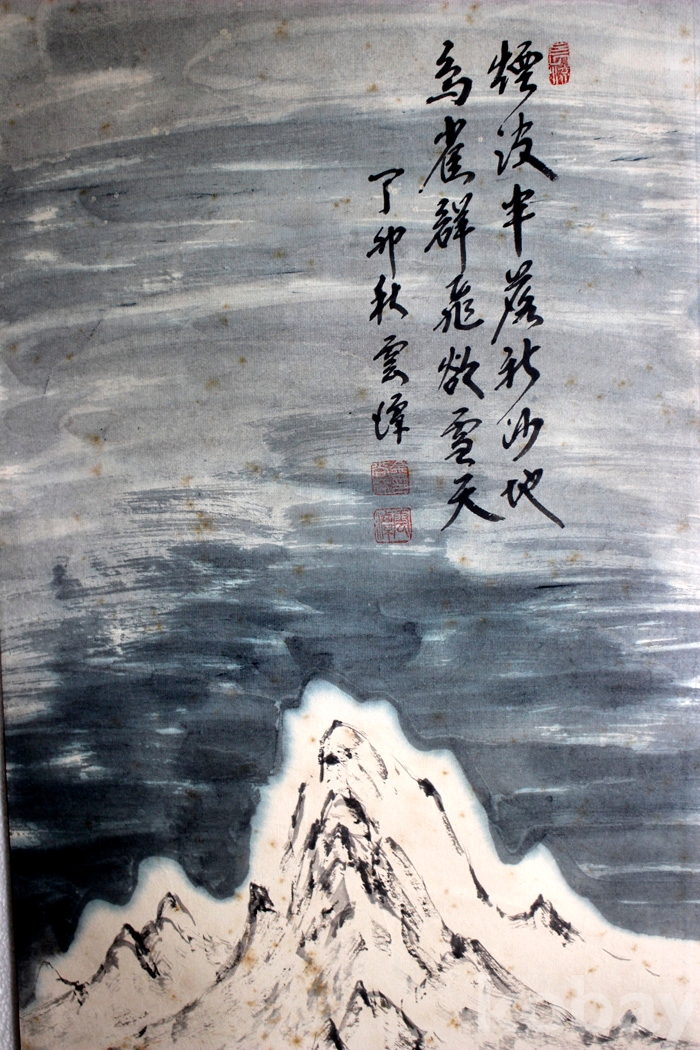 煙波半落新沙地
鳥雀群飛欲雪天
丁卯秋雲潭
kobay